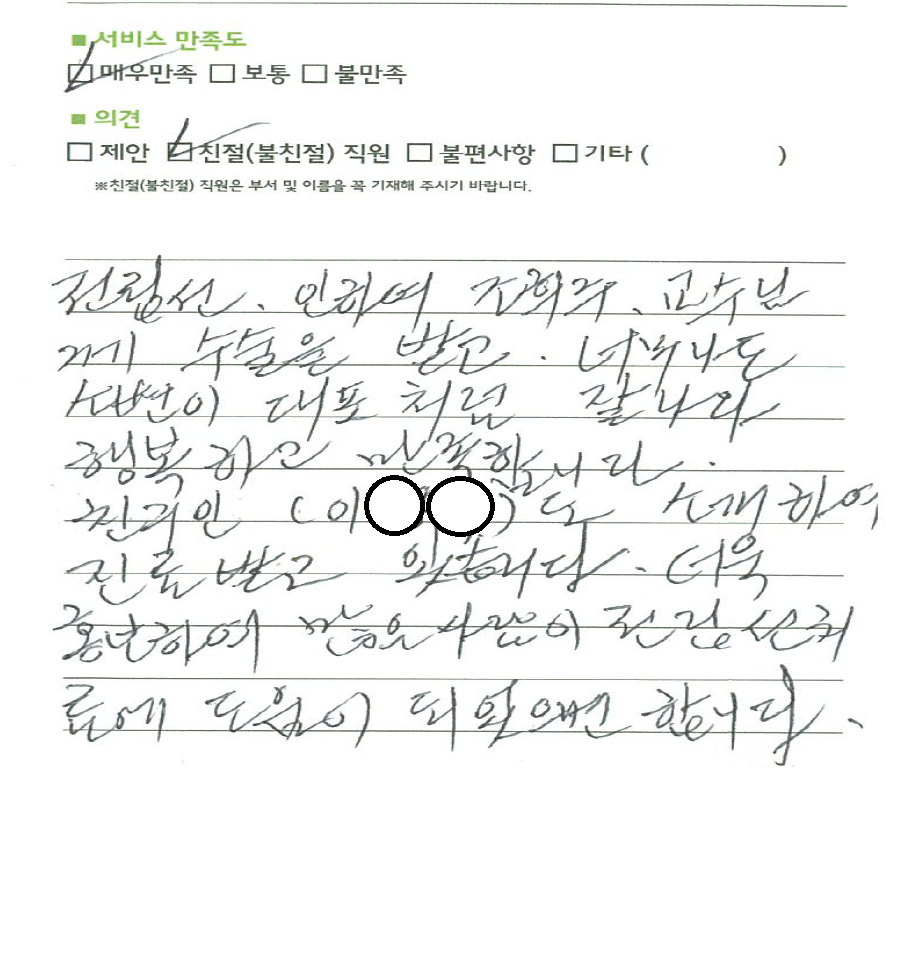 ■ 서비스 만족도
☑ 매우만족 □ 보통 □ 불만족
■ 의견
□ 제안 ☑ 친절(불친절) 직원 □ 불편사항 □ 기타 ( )
※친절(불친절) 직원은 부서 및 이름을 꼭 기재해 주시기 바랍니다.
전립선. 인하여 조희주. 교수님
께 수술을 받고. 너무나도
소변이 대포처럼 잘나와
행복하고 만족합니다.
친구인 (이○○)도 소개하여
진료받고 있습니다. 더욱
홍보하여 많은 사람이 전립선치
료에 도움이 되었으면 합니다.